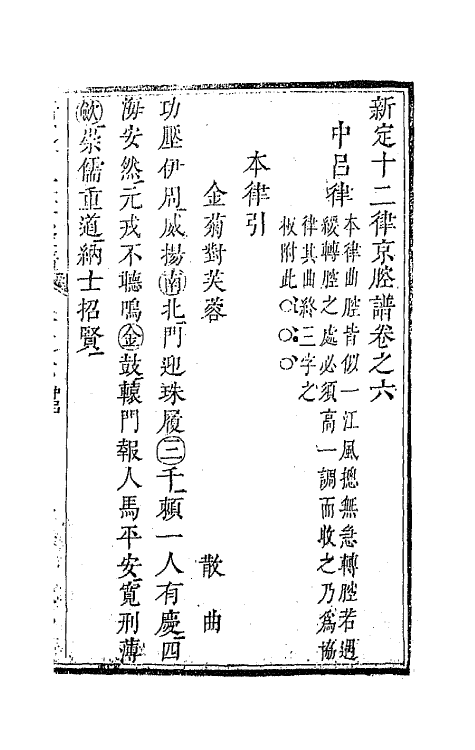 新定十二律京腔譜卷之六
中呂律
本律曲腔皆似一江風摠無急轉腔若遇
緩轉腔之處必須高一調而收之乃爲協
律其曲終三字之
板附此
本律引
金菊對芙蓉 散曲
功壓伊周威揚南北門迎珠履三千頼一人有慶四
海安然元戎不聽鳴金鼓轅門報人馬平安寬刑薄
歛崇儒重道納士招賢